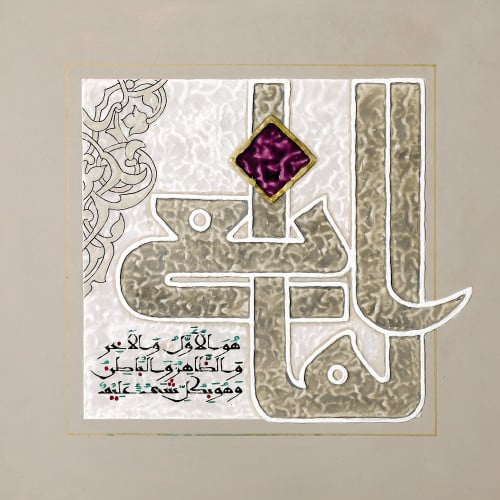 هُوَ الْأَوَّلُ وَالْآخِرُ
وَالظَّاهِرُ وَالْبَاطِنُ
وَهُوَ بِكُلِّ شَيْءٍ عَلِيمٌ